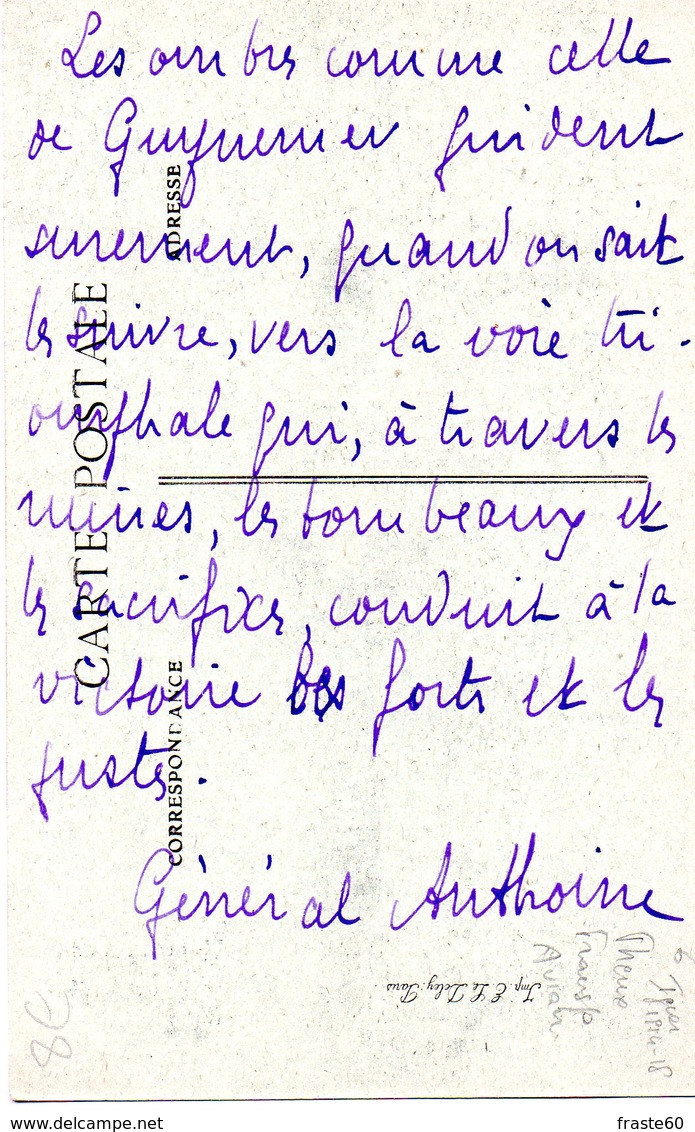 Les ombres comme celle
de Guynemer guident
surement, quand on sait
les suivre, vers la voie tri-
omphale qui, à travers les
ruines, les tombeaux et
les sacrifices, conduit à la
victoire les forts et les
justes.
Général Anthoine
CARTE POSTALE
CORRESPONDANCE
ADRESSE
Imp. E. Le Deley. Paris
6
1914-18
Theme
Transp
Aviat
8€
www.delcampe.net
fraste60